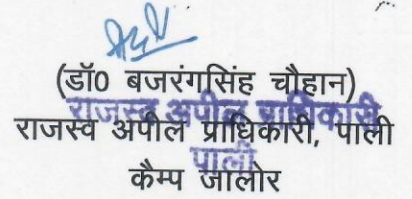 (डॉ0 बजरंगसिंह चौहान)
राजस्व अपील प्राधिकारी
राजस्व अपील प्राधिकारी, पाली
पाली
कैम्प जालोर